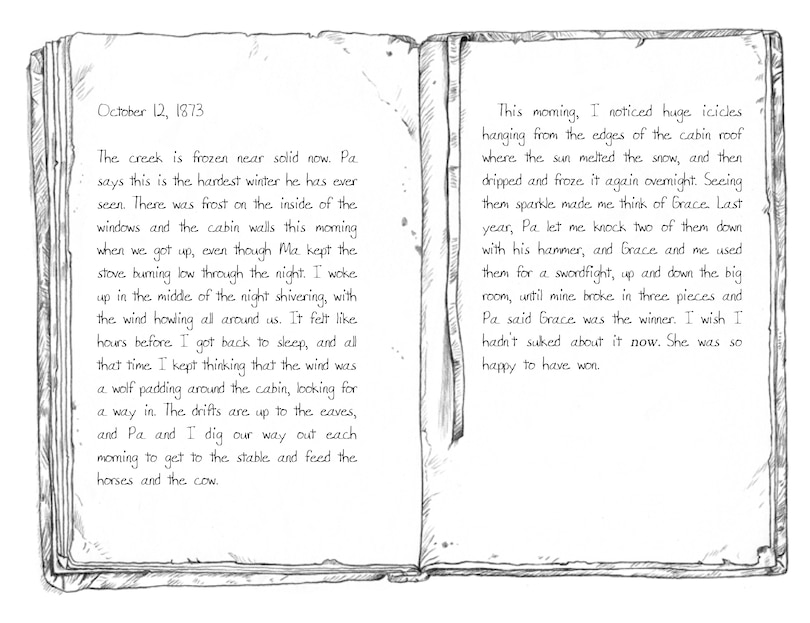 October 12, 1873
The creek is frozen near solid now. Pa
says this is the hardest winter he has ever
seen. There was frost on the inside of the
windows and the cabin walls this morning
when we got up, even though Ma kept the
stove burning low through the night. I woke
up in the middle of the night shivering, with
the wind howling all around us. It felt like
hours before I got back to sleep, and all
that time I kept thinking that the wind was
a wolf padding around the cabin, looking for
a way in. The drifts are up to the eaves,
and Pa and I dig our way out each
morning to get to the stable and feed the
horses and the cow.
This morning, I noticed huge icicles
hanging from the edges of the cabin roof
where the sun melted the snow, and then
dripped and froze it again overnight. Seeing
them sparkle made me think of Grace. Last
year, Pa let me knock two of them down
with his hammer, and Grace and me used
them for a swordfight, up and down the big
room, until mine broke in three pieces and
Pa said Grace was the winner. I wish I
hadn't sulked about it now. She was so
happy to have won.